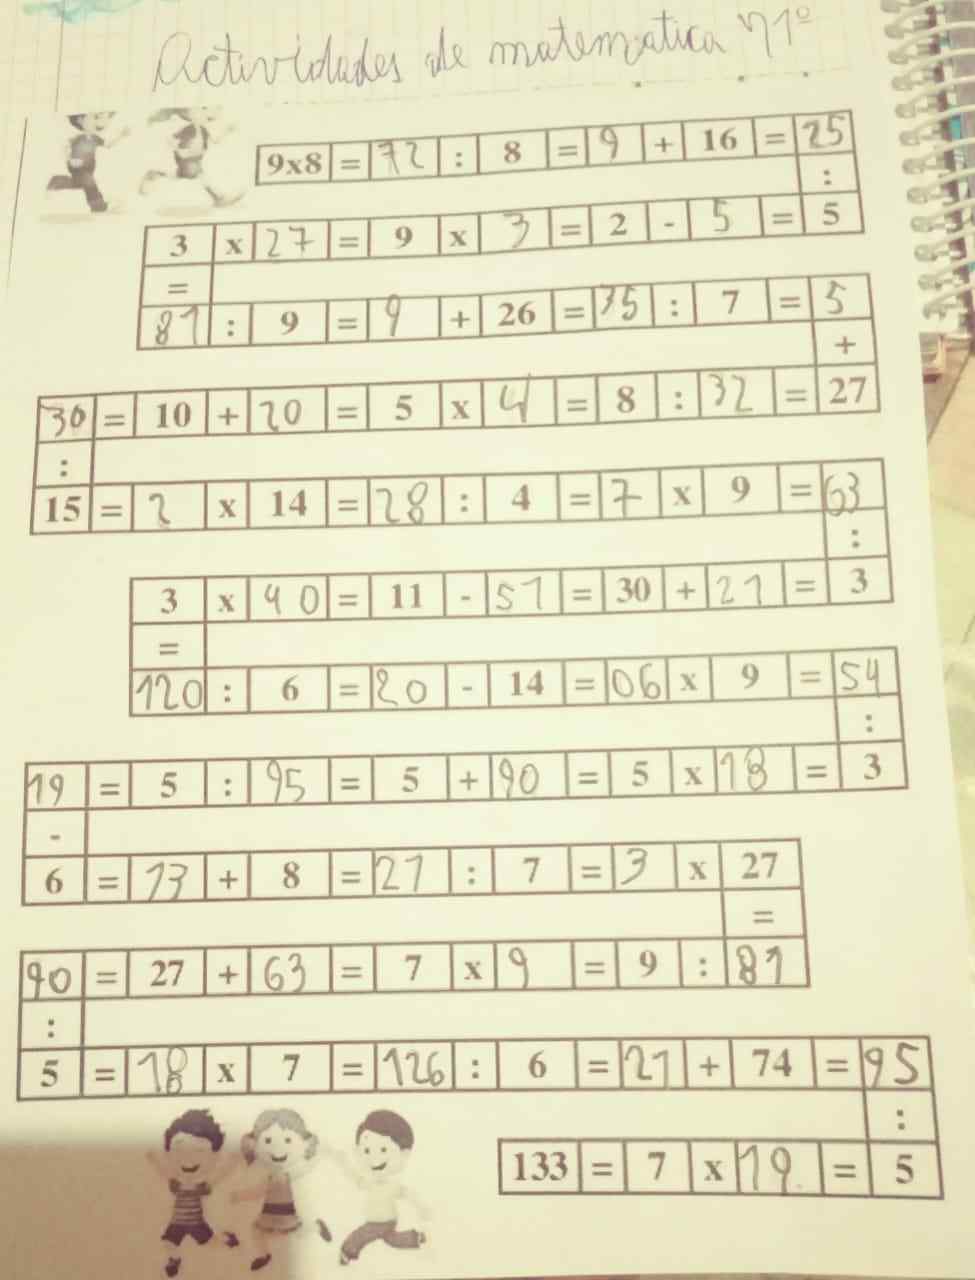 Actividades de matematica N1º
9x8 = 72 : 8 = 9 + 16 = 25
:
3 x 27 = 9 x 3 = 2 - 5 = 5
=
81 : 9 = 9 + 26 = 35 : 7 = 5
+
30 = 10 + 20 = 5 x 4 = 8 : 32 = 27
:
15 = 2 x 14 = 28 : 4 = 7 x 9 = 63
:
3 x 40 = 11 - 51 = 30 + 21 = 3
=
120 : 6 = 20 - 14 = 06 x 9 = 54
:
19 = 5 : 95 = 5 + 90 = 5 x 18 = 3
-
6 = 13 + 8 = 21 : 7 = 3 x 27
=
90 = 27 + 63 = 7 x 9 = 9 : 81
:
5 = 18 x 7 = 126 : 6 = 21 + 74 = 95
:
133 = 7 x 19 = 5